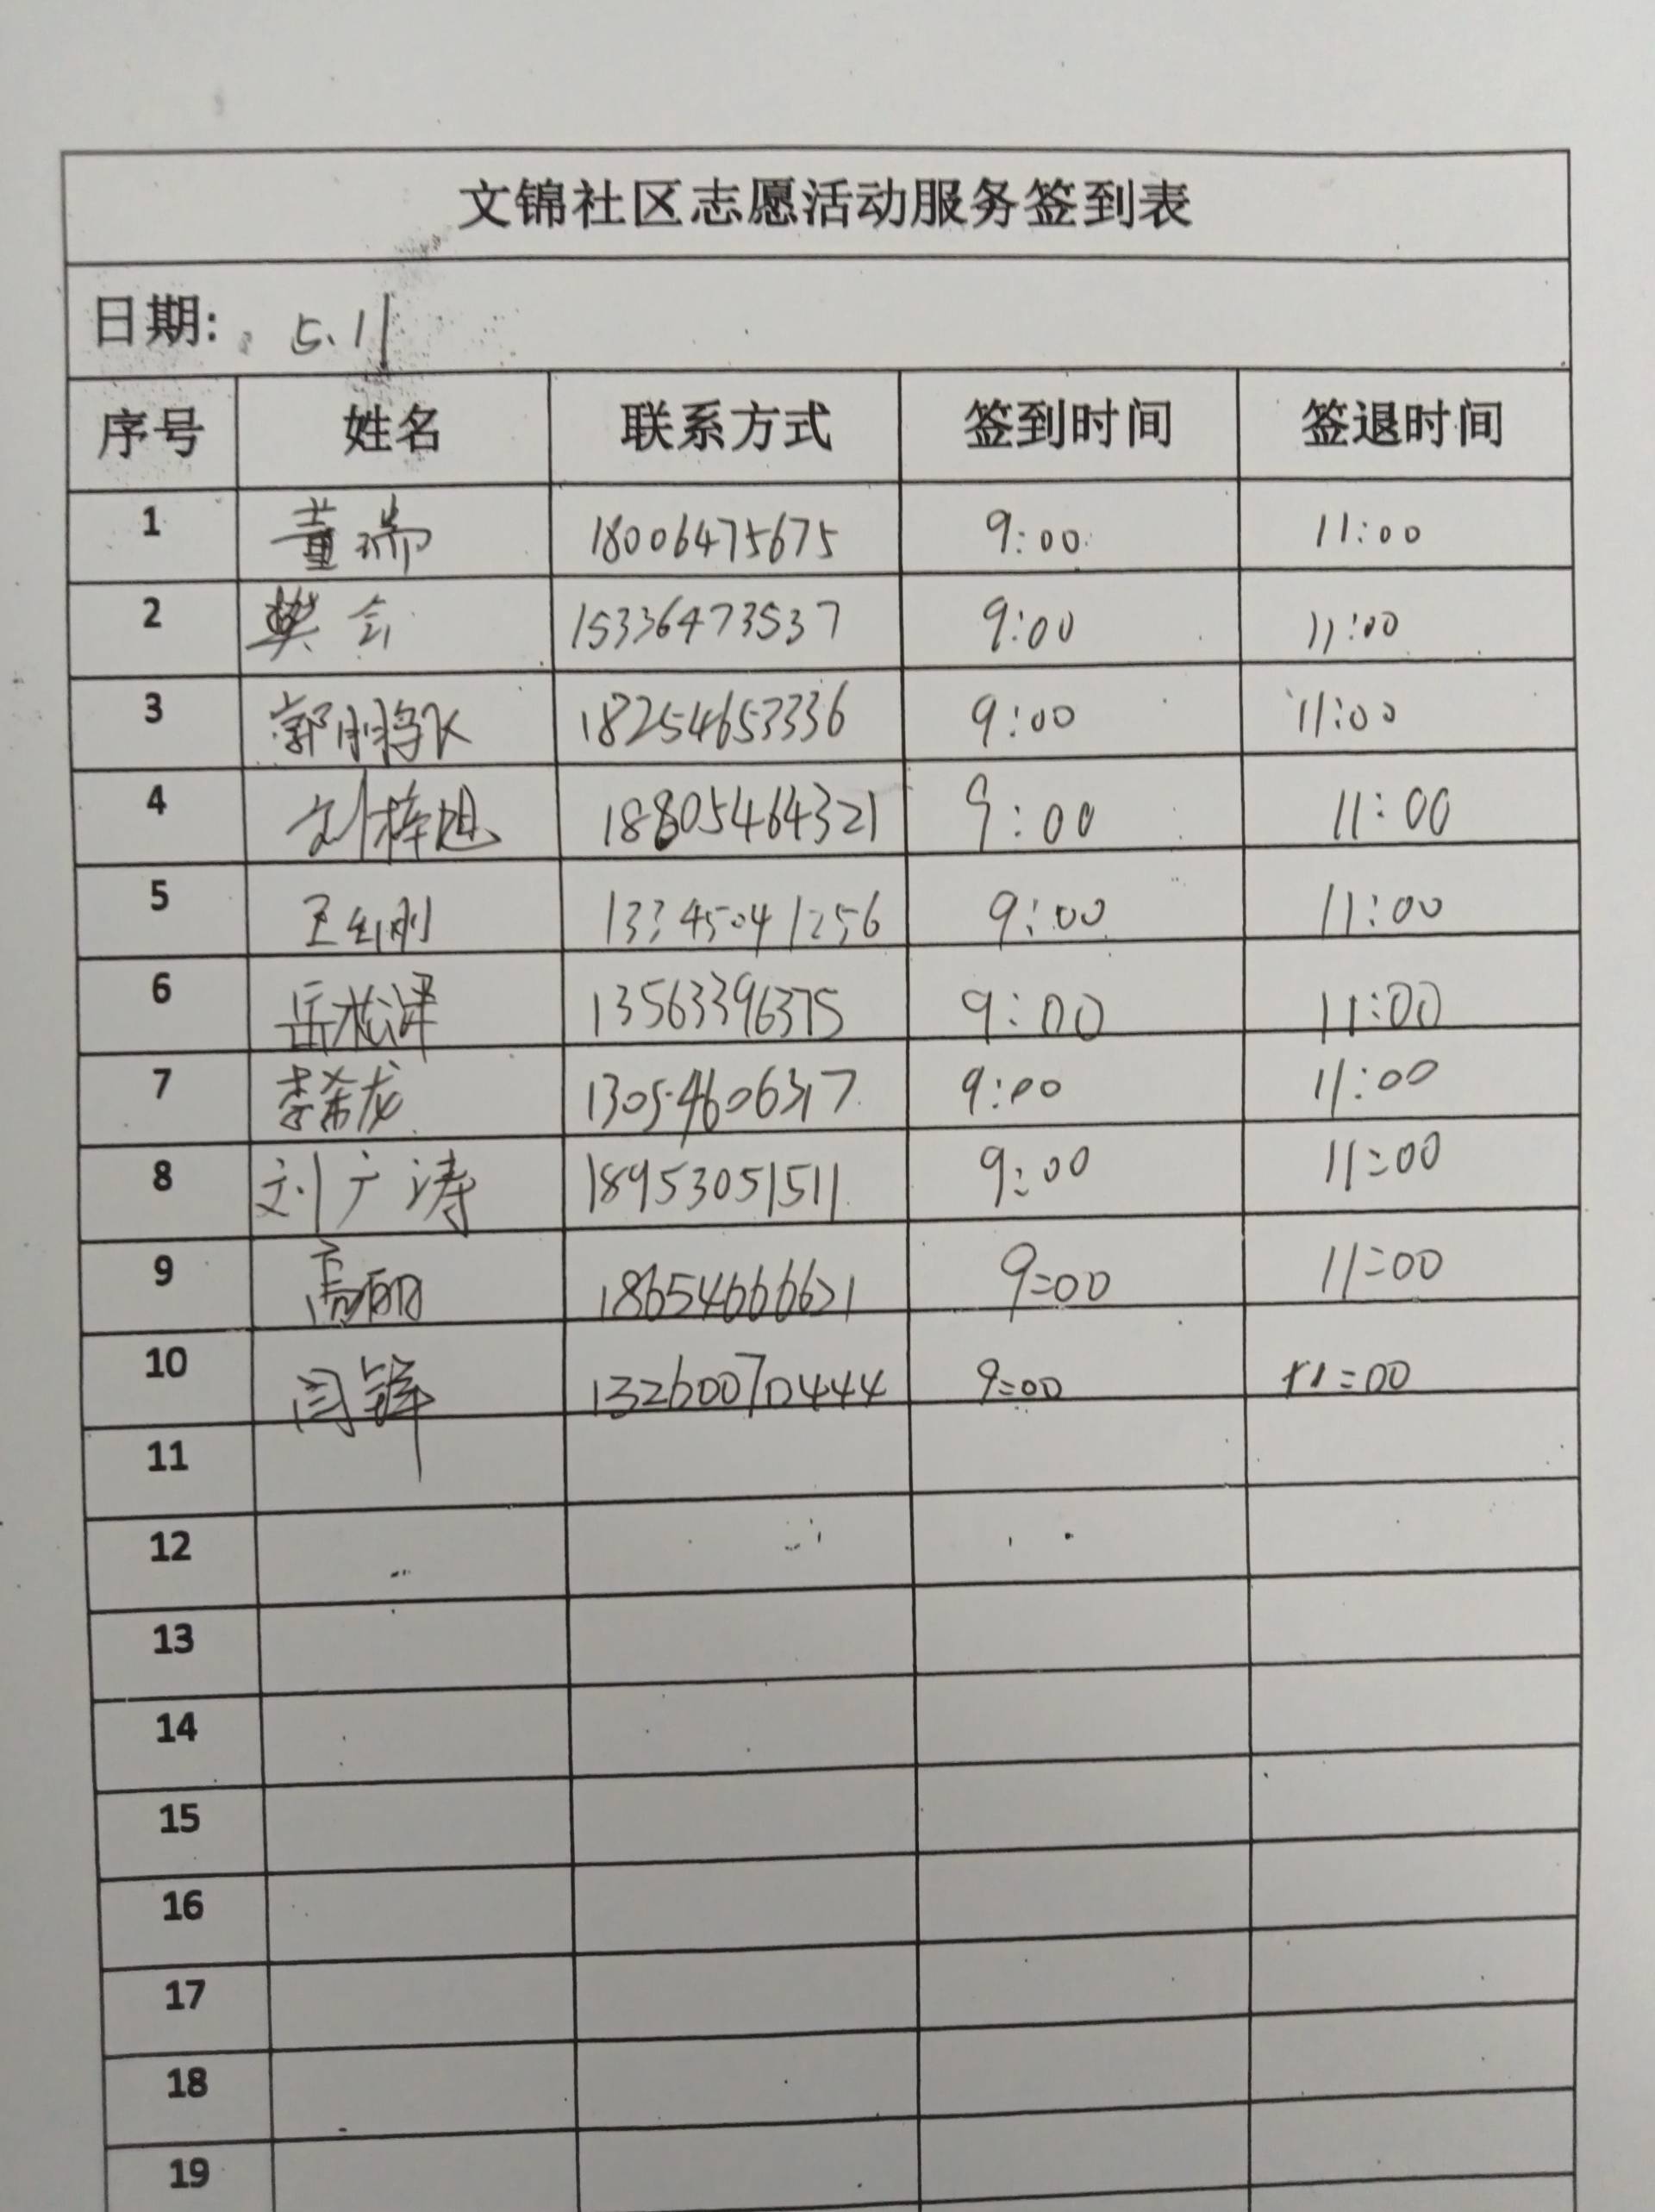 文锦社区志愿活动服务签到表
日期: 5.11
序号 姓名 联系方式 签到时间 签退时间
1 董瑞 18006475675 9:00 11:00
2 樊会 15336473537 9:00 11:00
3 郭 18254653336 9:00 11:00
4 刘梓旭 18805464321 9:00 11:00
5 王红刚 13345041256 9:00 11:00
6 岳松泽 13563396375 9:00 11:00
7 李希龙 13054606317 9:00 11:00
8 刘广涛 18953051511 9:00 11:00
9 高丽 18654666621 9:00 11:00
10 闫锋 13260070444 9:00 11:00
11
12
13
14
15
16
17
18
19